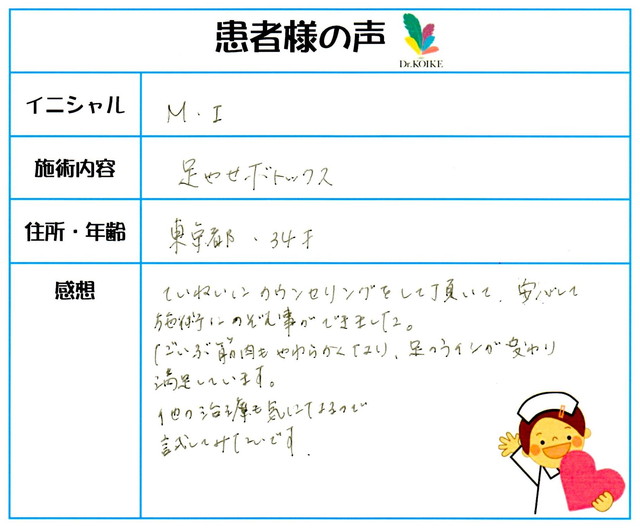 患者様の声
Dr.KOIKE
イニシャル
M・I
施術内容
足やせボトックス
住所・年齢
東京都・34才
感想
ていねいにカウンセリングをして頂いて、安心して
施術にのぞむ事ができました。
だいぶ筋肉もやわらかくなり、足のラインが変わり
満足しています。
他の治療も気になるので
試してみたいです。